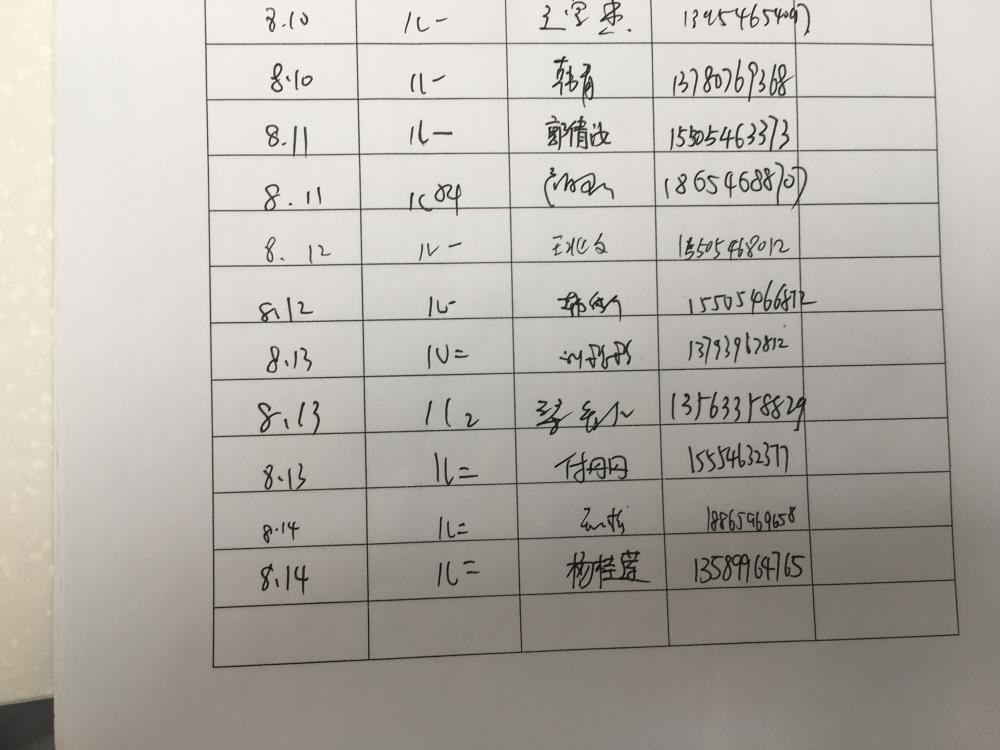 8.10 儿一 13954654097
8.10 儿一 韩育 13780769368
8.11 儿一 郭倩汝 15505463373
8.11 儿 18654688707
8.12 儿一 15505468012
8.12 儿一 15505466872
8.13 儿二 13793967812
8.13 儿2 13563358829
8.13 儿二 付丹丹 15554632377
8.14 儿二 18865969658
8.14 儿二 杨桂莲 13589964765